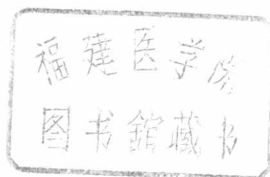 福建医学院
图书館藏书